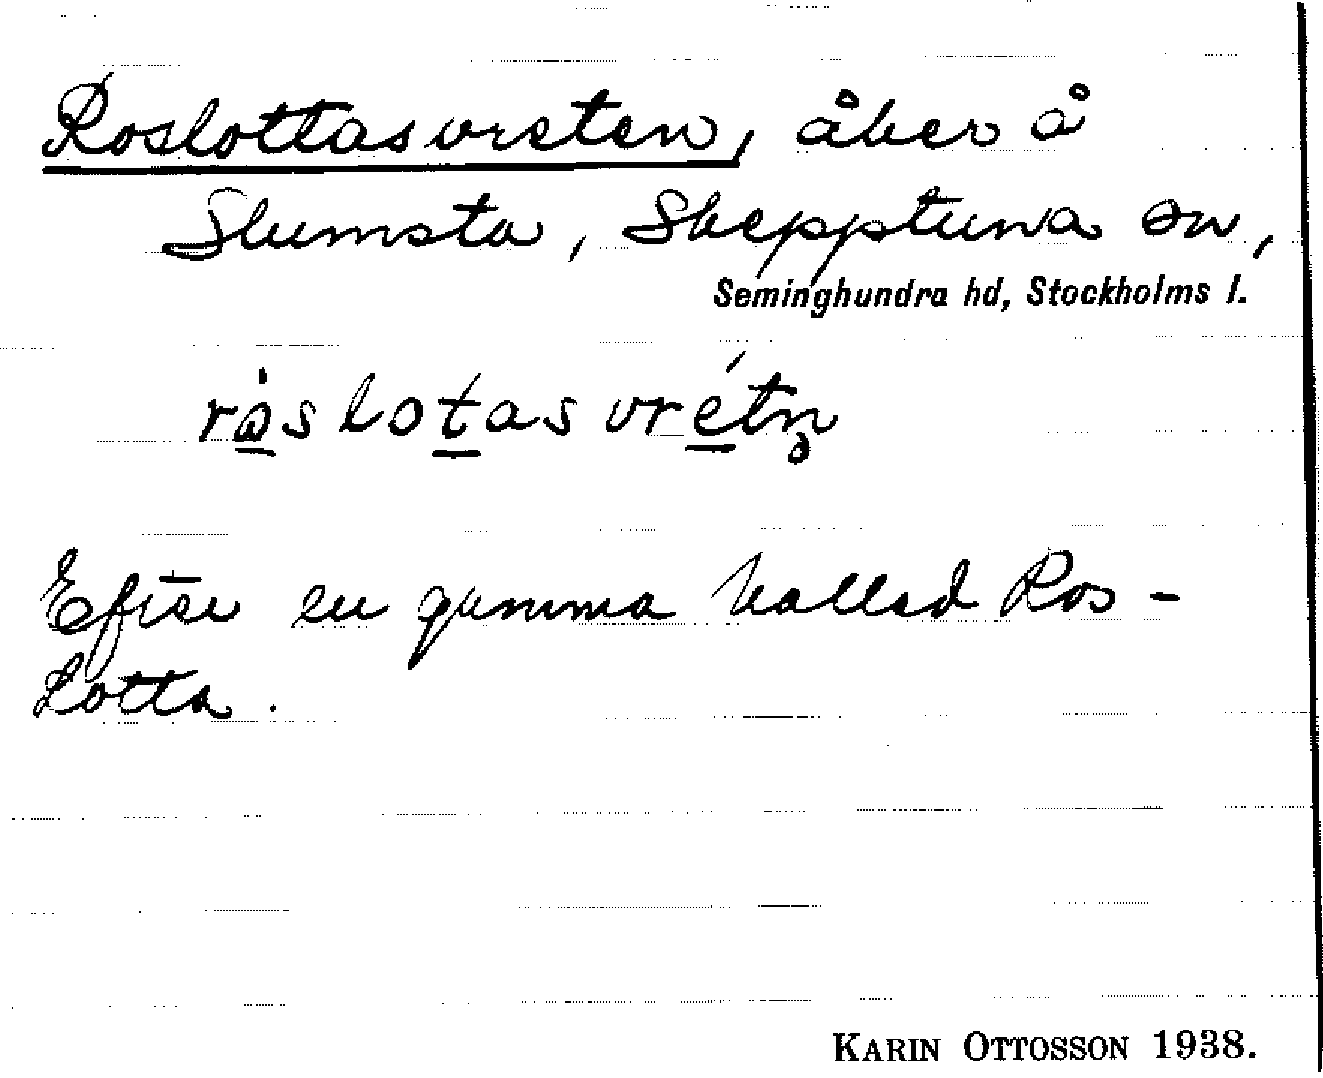 Roslottasvreten, åker å
Slumsta, Skepptuna sn,
Seminghundra hd, Stockholms l.
ròslotasvrétn̥
Efter en gumma kallad Ros-
Lotta.
KARIN OTTOSSON 1938.